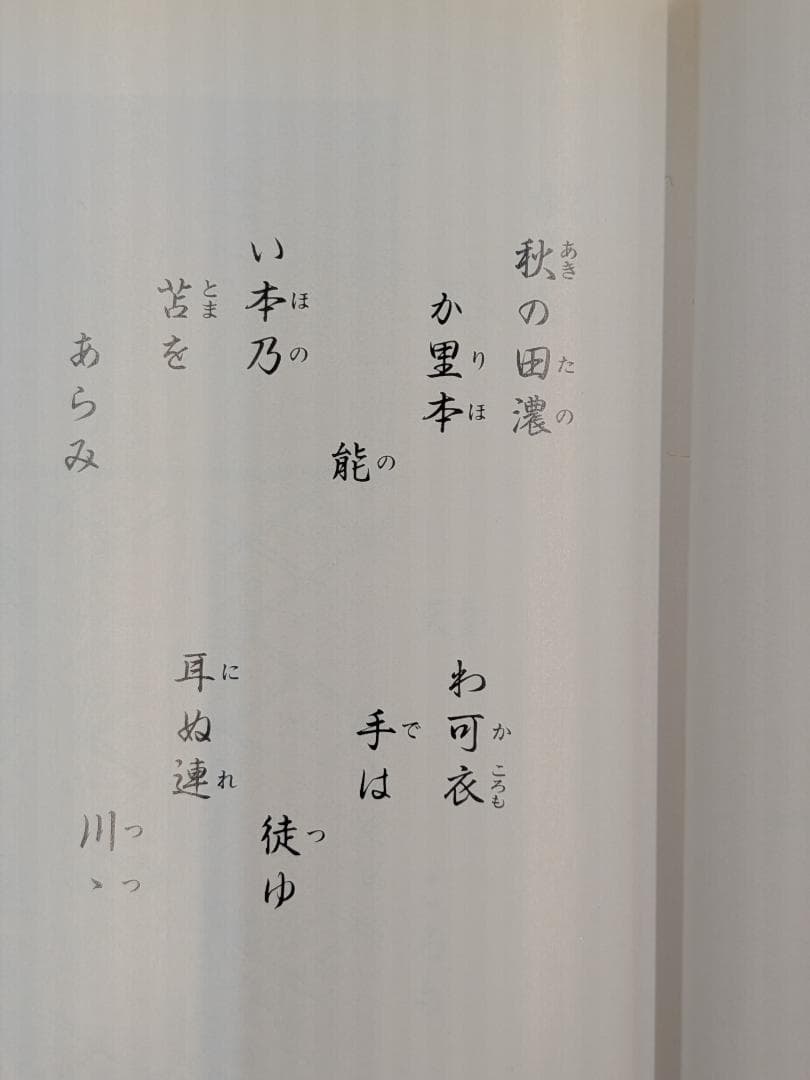 秋の田濃
あき た の
か里本
り ほ
能
の
い本乃
ほ の
苫を
とま
あらみ
わ可衣
か ころも
手は
で
徒ゆ
つ
耳ぬ連
に れ
川ゝ
つ つ